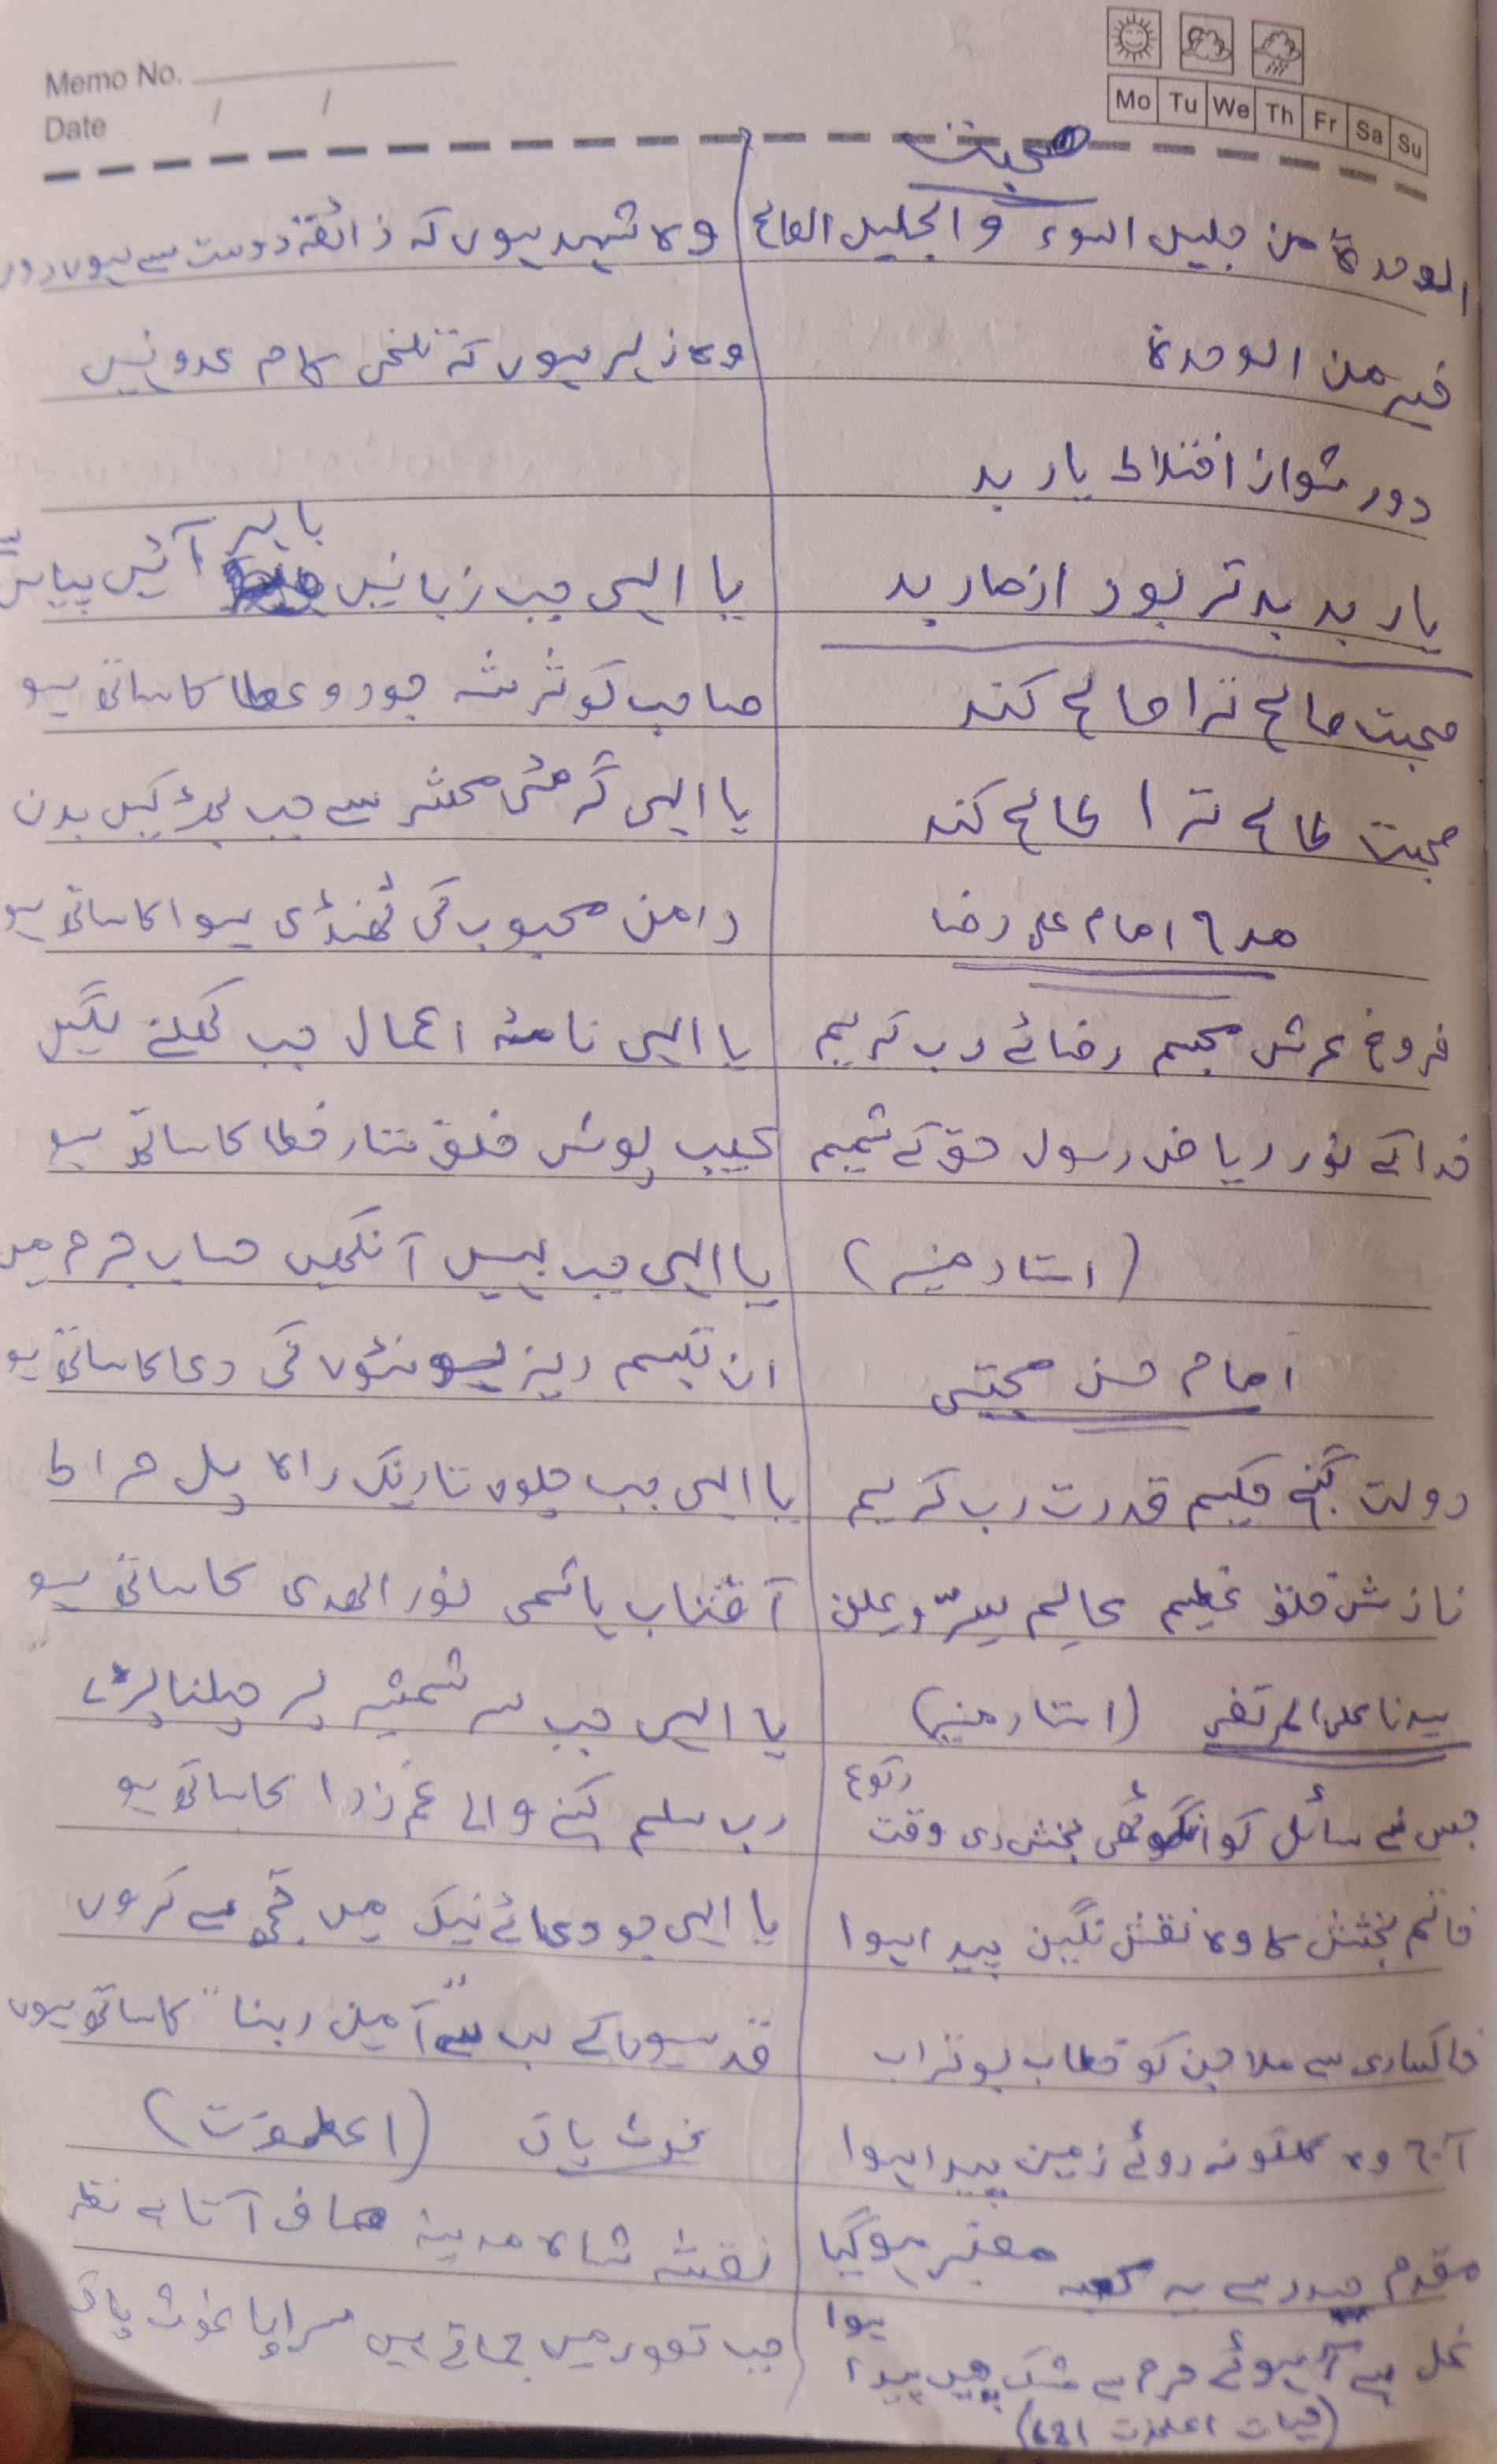 Memo No.
Date / /
Mo Tu We Th Fr Sa Su
صحبت
الوحدۃ من جلیس السوء والجلیس الصالح
خیر من الوحدۃ
دور شو از اختلاط یار بد
یار بد بدتر بود از مار بد
صحبت صالح ترا صالح کند
صحبت طالح ترا طالح کند
مدح امام علی رضا
فروغ عرش مجسم رضائے رب کریم
خدا کے نور ریاض رسول حق کے شمیم
(استاد منیر)
امام حسن مجتبی
دولت گنج حکیم قدرت رب کریم
نازش خلق عظیم عالم سر و علن
سیدنا علی المرتضی (استاد منیر)
جس نے سائل کو انگوٹھی بخش دی وقت رکوع
خاتم بخشش کا وہ نقش نگین پیدا ہوا
خاکساری سے ملا جن کو خطاب بوتراب
آج وہ گلگونہ روئے زمین پیدا ہوا
مقدم حیدر سے یہ کعبہ معنبر ہوگیا
آہوئے حرم سے مشک چیں پیدا ہوا
(حیات اعلحضرت 182)
وہ شہد ہوں کہ ذائقۂ دوست سے ہوں دور
وہ زہر ہوں کہ تلخی کام عدو نہیں
یا الہی جب زبانیں باہر آئیں پیاس سے
صاحب کوثر شہ جود و عطا کا ساتھ ہو
یا الہی گرمئی محشر سے جب بھڑکیں بدن
دامن محبوب کی ٹھنڈی ہوا کا ساتھ ہو
یا الہی نامۂ اعمال جب کھلنے لگیں
عیب پوش خلق ستار خطا کا ساتھ ہو
یا الہی جب بہیں آنکھیں حساب جرم میں
ان تبسم ریز ہونٹوں کی دعا کا ساتھ ہو
یا الہی جب چلوں تاریک راہ پل صراط
آفتاب ہاشمی نور الھدی کا ساتھ ہو
یا الہی جب سر شمشیر پر چلنا پڑے
رب سلم کہنے والے غم زدا کا ساتھ ہو
یا الہی جو دعائے نیک میں تجھ سے کروں
قدسیوں کے لب سے "آمین ربنا" کا ساتھ ہوں
غوث پاک (اعلحضرت)
نقشہ شاہ مدینہ صاف آتا ہے نظر
جب تصور میں جماتے ہیں سراپا غوث پاک